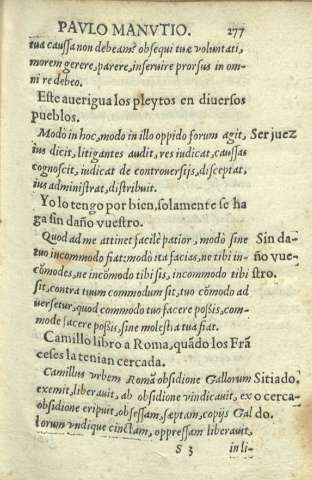 PAVLO MANVTIO. 277
tua caussa non debeam? obsequi tuæ voluntati,
morem gerere, parere, inseruire prorsus in om-
ni re debeo.
Este auerigua los pleytos en diuersos
pueblos.
Modò in hoc, modo in illo oppido forum agit, Ser juez
ius dicit, litigantes audit, res iudicat, caussas
cognoscit, iudicat de controuersijs, disceptat,
ius administrat, distribuit.
Yo lo tengo por bien, solamente se ha
ga sin daño vuestro.
Quod ad me attinet facilè patior, modò sine Sin da-
tuo incommodo fiat: modò ita facias, ne tibi in- ño vue-
cōmodes, ne incōmodo tibi sis, incommodo tibi stro.
sit, contra tuum commodum sit, tuo cōmodo ad
uersetur, quod commodo tuo facere possis, com-
mode facere possis, sine molestia tua fiat.
Camillo libro a Roma, quādo los Frā
ceses la tenian cercada.
Camillus vrbem Romā obsidione Gallorum Sitiado,
exemit, liberauit, ab obsidione vindicauit, ex o cerca-
obsidione eripuit, obsessam, sæptam, copijs Gal do.
lorum vndique cinctam, oppressam liberauit,
S 3 in li-